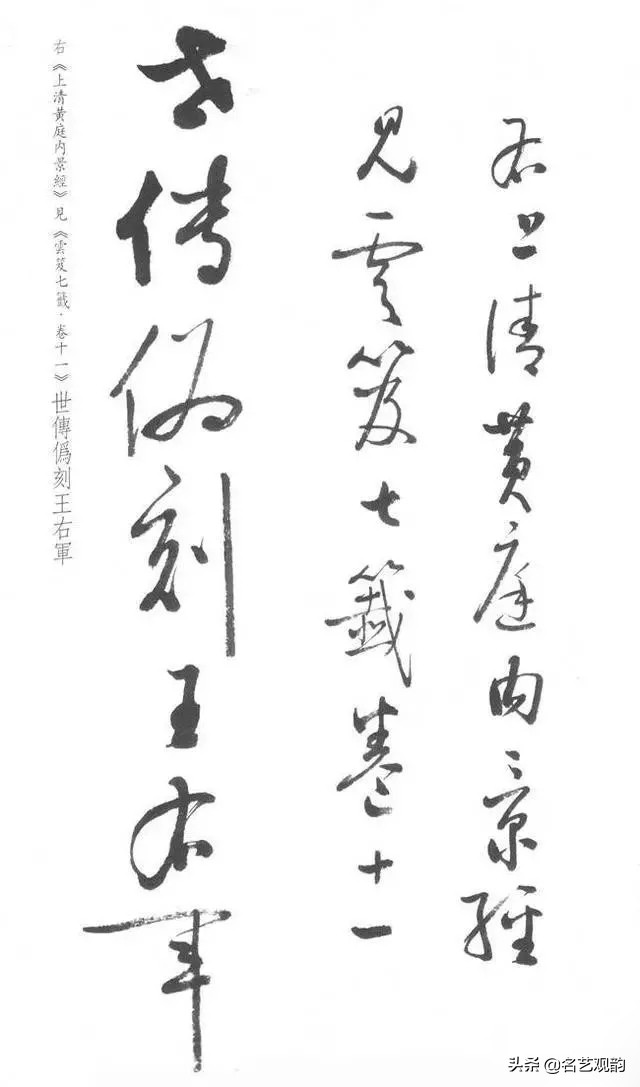 右上清黄庭内景經
見雲笈七籤卷十一
世傳偽刻王右軍
右《上清黄庭内景經》見《雲笈七籤·卷十一》世傳僞刻王右軍
头条 @名艺观韵